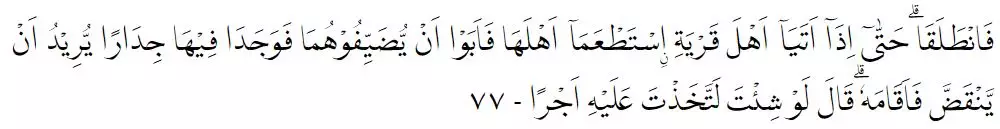 فَانْطَلَقَاۗ حَتّٰىٓ اِذَآ اَتَيَآ اَهْلَ قَرْيَةِ ِۨاسْتَطْعَمَآ اَهْلَهَا فَاَبَوْا اَنْ يُّضَيِّفُوْهُمَا فَوَجَدَا فِيْهَا جِدَارًا يُّرِيْدُ اَنْ
يَّنْقَضَّ فَاَقَامَهٗ ۗقَالَ لَوْ شِئْتَ لَتَّخَذْتَ عَلَيْهِ اَجْرًا - ٧٧